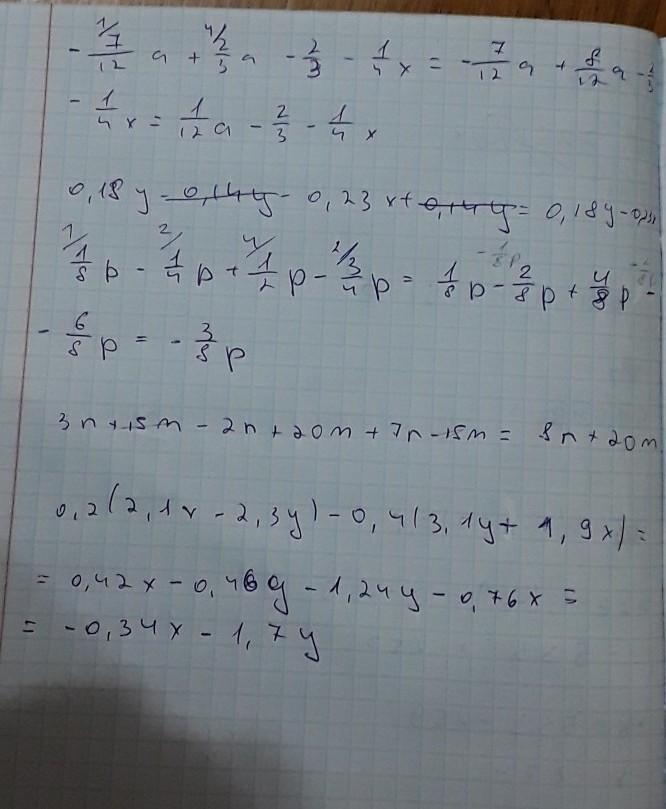 - 7/12 a + 2/3 a - 2/3 - 1/4 x = - 7/12 a + 8/12 a - 2/3
- 1/4 x = 1/12 a - 2/3 - 1/4 x
0,18y - 0,14y - 0,23x + 0,14y = 0,18y -
1/8 p - 1/4 p + 1/2 p - 3/4 p = 1/8 p - 2/8 p + 4/8 p -
- 6/8 p = - 3/8 p
3n + 15m - 2n + 20m + 7n - 15m = 8n + 20m
0,2(2,1x - 2,3y) - 0,4(3,1y + 1,9x) =
= 0,42x - 0,46y - 1,24y - 0,76x =
= -0,34x - 1,7y